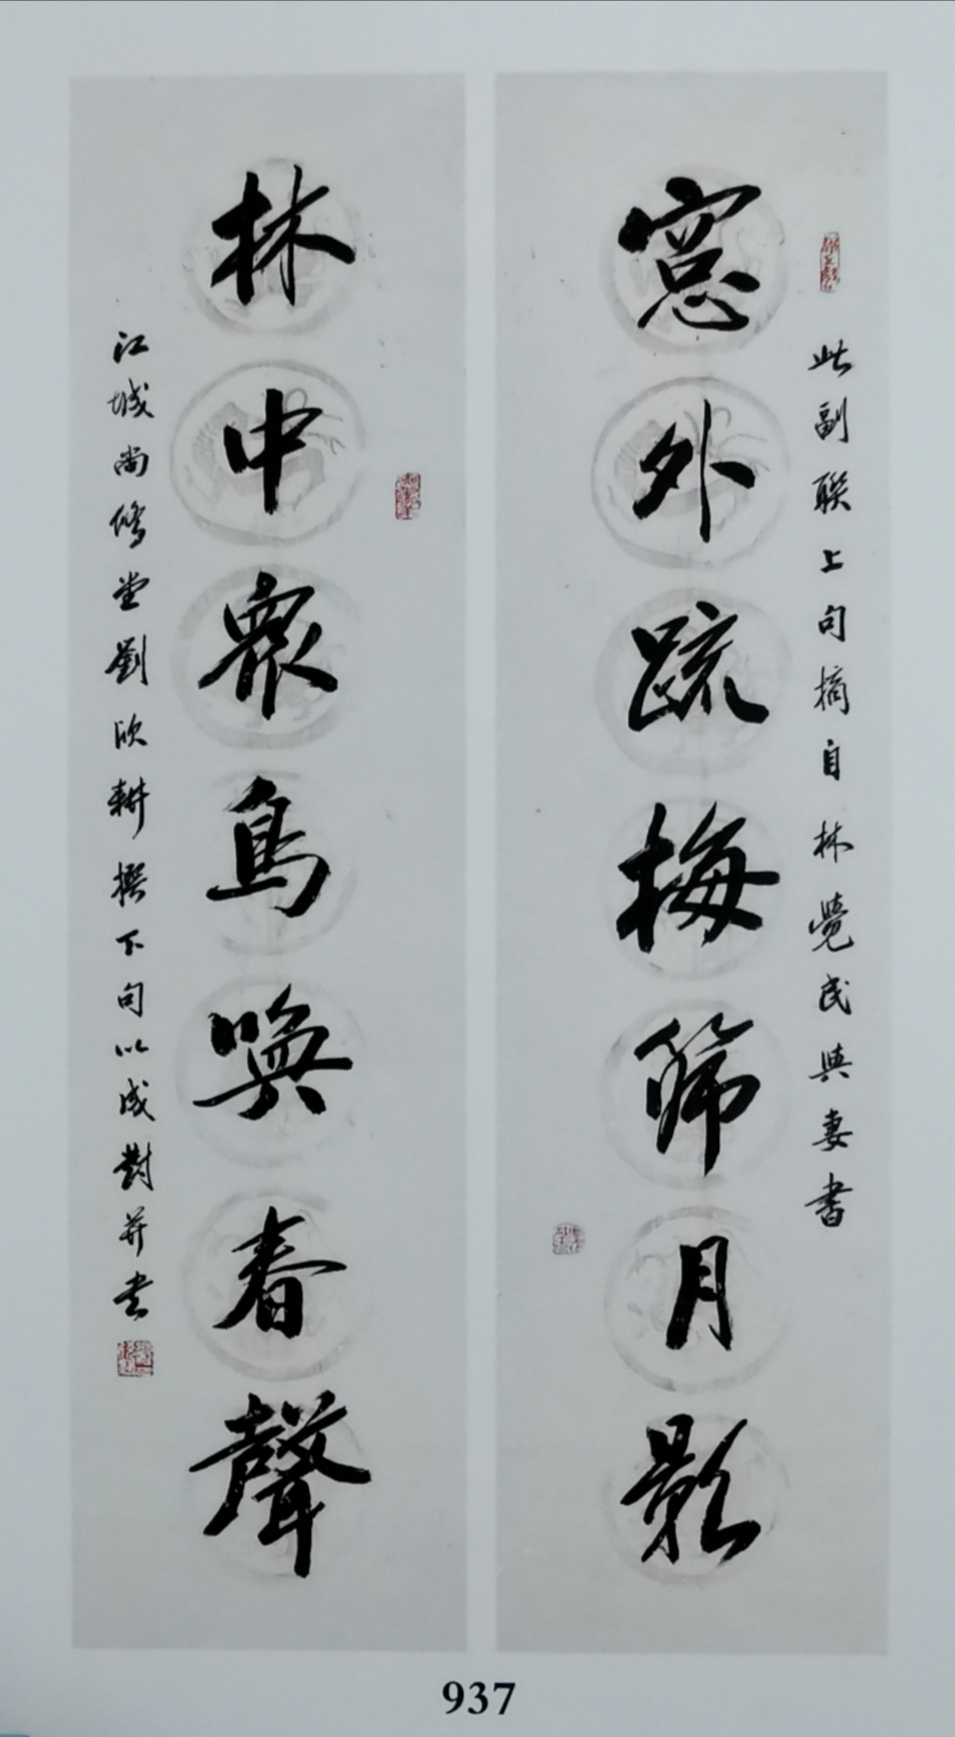 此副聯上句摘自林覺民與妻書
窓外疏梅篩月影
林中衆鳥喚春聲
江城尚修堂劉欣耕撰下句以成對并书
937